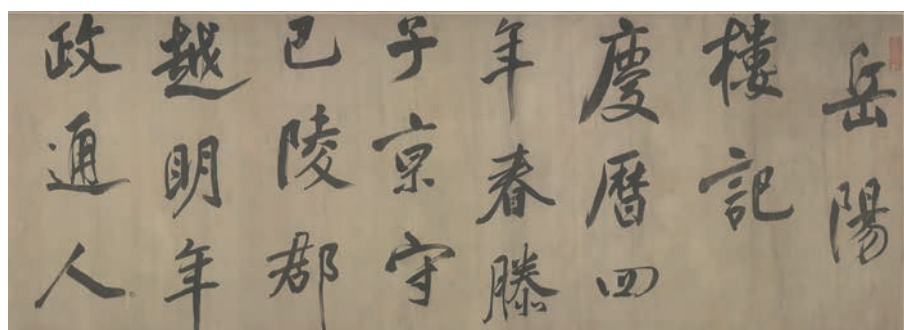 岳陽
樓記
慶曆四
年春滕
子京守
巴陵郡
越明年
政通人